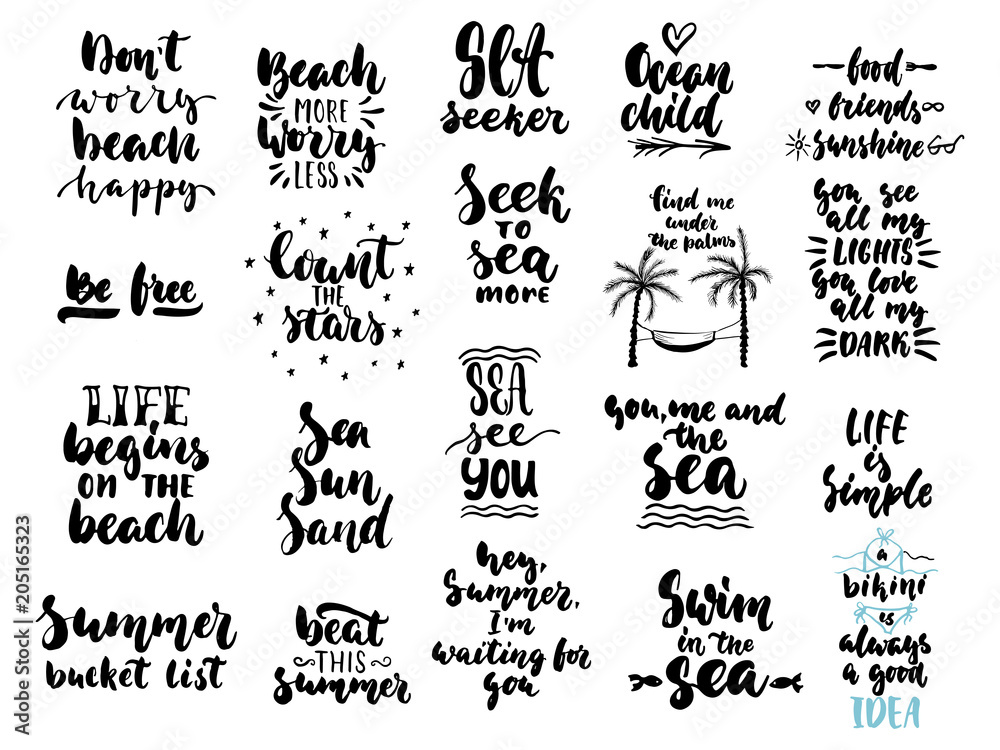 Don't
worry
beach
happy
Beach
MORE
worry
LESS
SEA
seeker
Ocean
child
food
friends
sunshine
Be free
Count
THE
stars
Seek
TO
sea
MORE
find me
under
the palms
you see
all my
LIGHTS
you love
all my
DARK
LIFE
begins
ON THE
beach
Sea
Sun
Sand
SEA
see
YOU
you, me and
the
sea
LIFE
is
simple
Summer
bucket list
beat
THIS
summer
hey,
Summer,
I'm
waiting for
you
Swim
in the
sea
a
bikini
is
always
a good
IDEA
Adobe Stock | #205165323